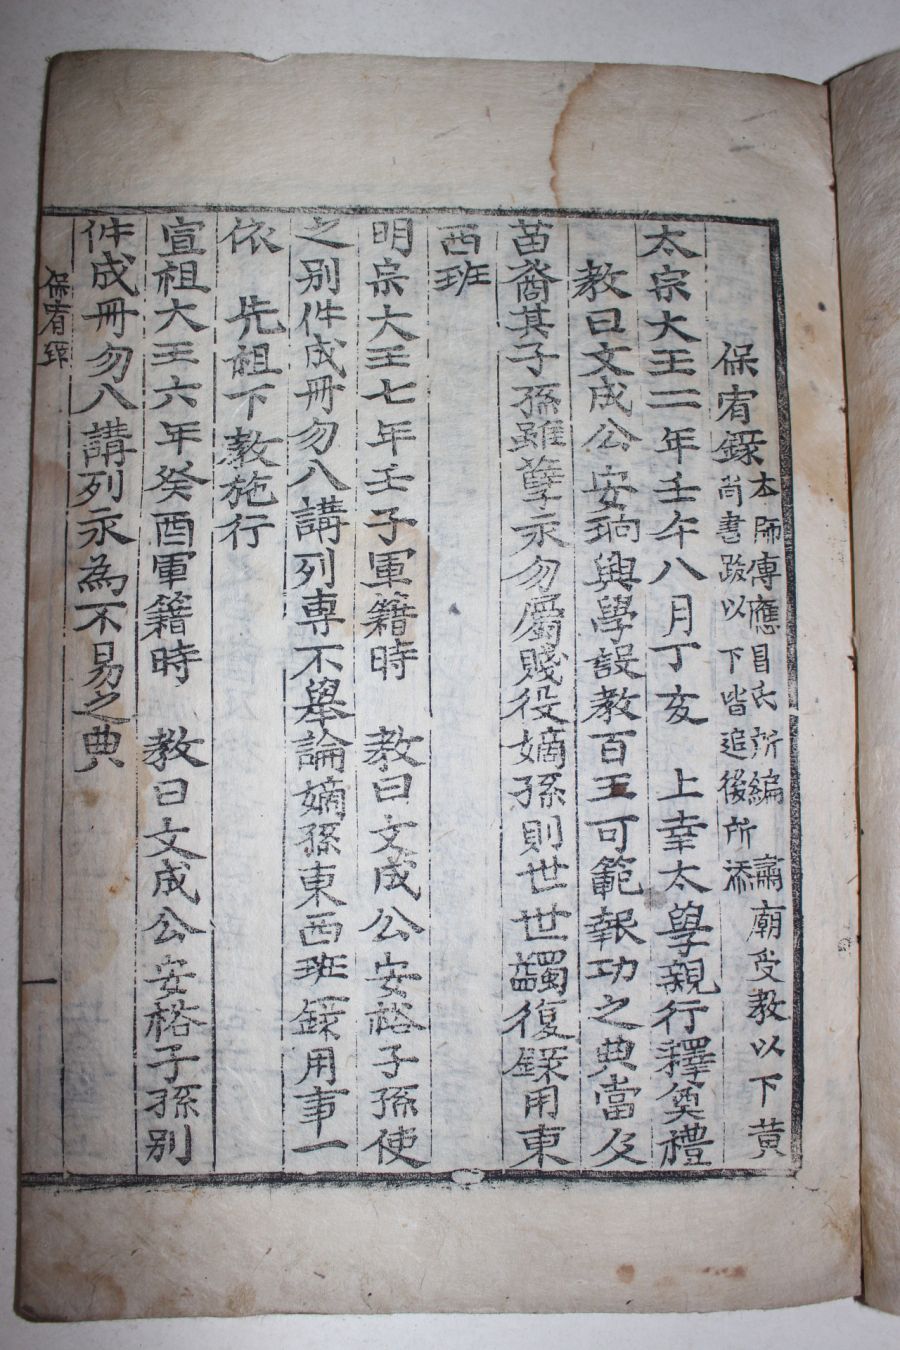 保宥錄 本師傅應昌氏所編 肅廟受教以下黃
尙書跋以下皆追後所添
太宗大王二年壬午八月丁亥 上幸太學親行釋奠禮
教曰文成公安珦興學設教百王可範報功之典當及
苗裔其子孫雖孽永勿屬賤役嫡孫則世世蠲復錄用東
西班
明宗大王七年壬子軍籍時 教曰文成公安裕子孫使
之別件成冊勿入講列專不擧論嫡孫東西班錄用事一
依 先祖下教施行
宣祖大王六年癸酉軍籍時 教曰文成公安裕子孫別
件成冊勿入講列永爲不易之典
保宥錄
一